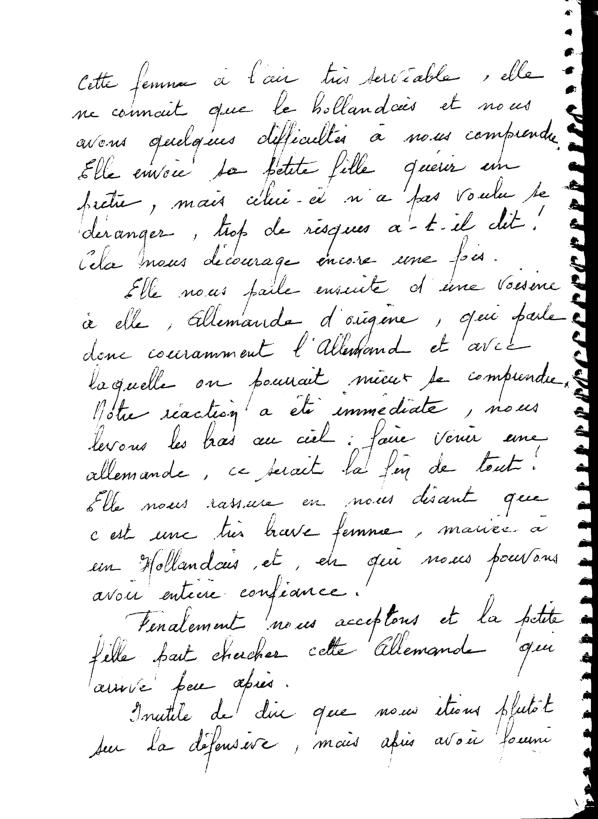 Cette femme à l'air très serviable, elle
ne connait que le hollandais et nous
avons quelques difficultés à nous comprendre.
Elle envoie sa petite fille quérir un
prêtre, mais celui-ci n'a pas voulu se
déranger, trop de risques a-t-il dit !
Cela nous décourage encore une fois.
Elle nous parle ensuite d'une voisine
à elle, Allemande d'origine, qui parle
donc couramment l'Allemand et avec
laquelle on pourrait mieux se comprendre.
Notre réaction a été immédiate, nous
levons les bras au ciel : faire venir une
allemande, ce serait la fin de tout !
Elle nous rassure en nous disant que
c'est une très brave femme, mariée à
un Hollandais, et, en qui nous pouvons
avoir entière confiance.
Finalement nous acceptons et la petite
fille part chercher cette Allemande qui
arrive peu après.
Inutile de dire que nous étions plutôt
sur la défensive, mais après avoir fourni